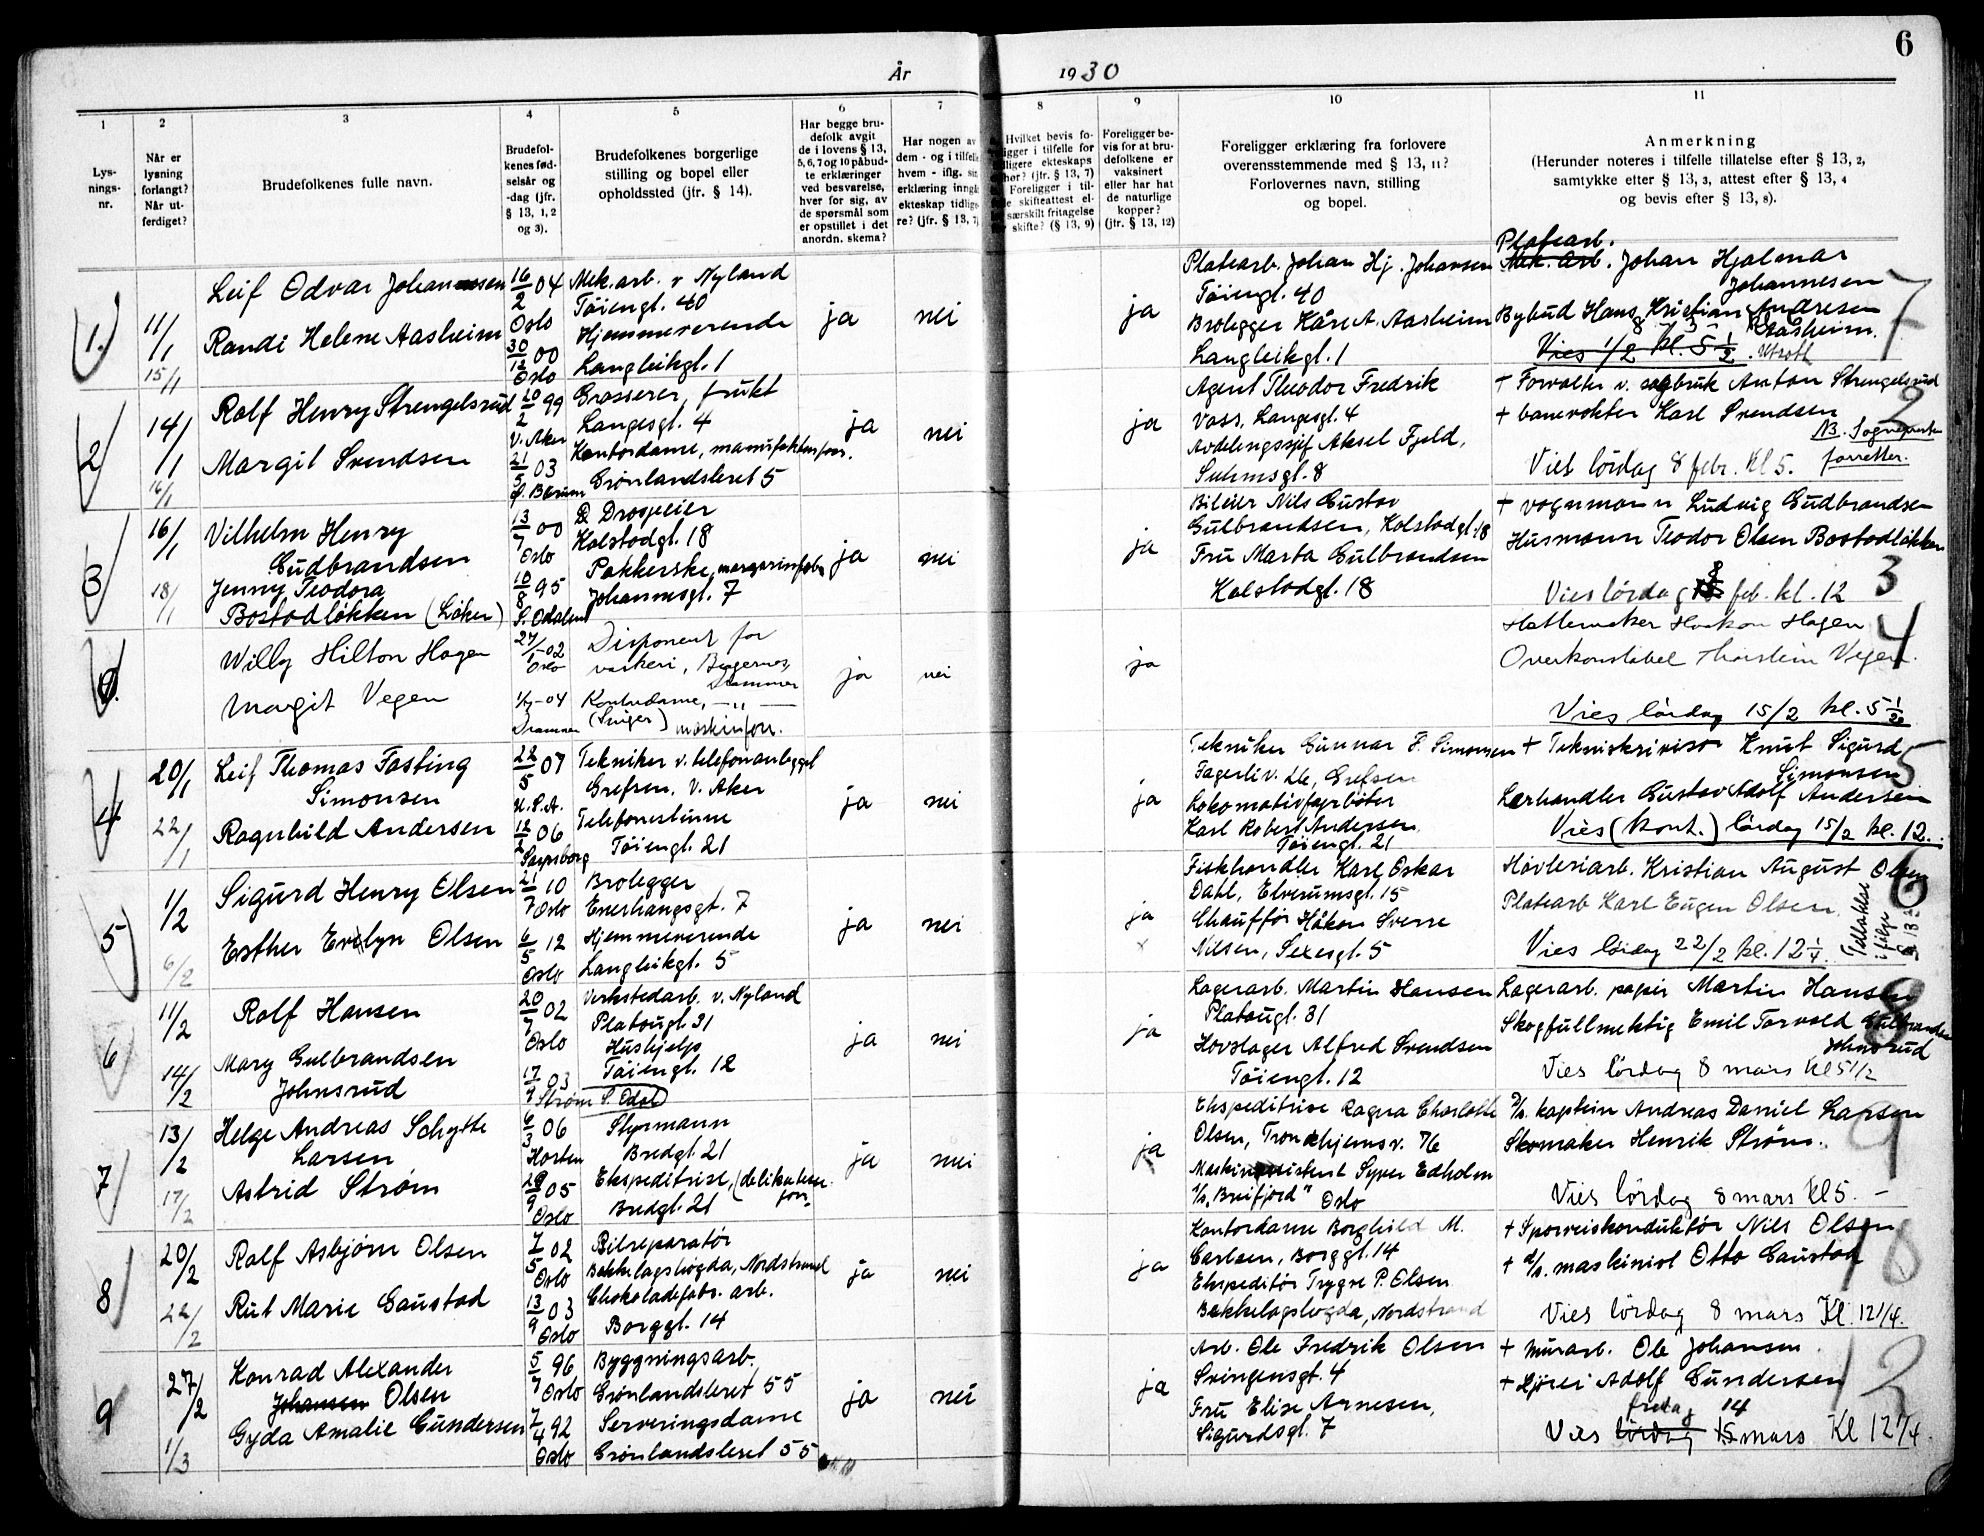 6
År 1930
1
2
3
4
5
6
7
8
9
10
11
Lys-
nings-
nr.
Når er
lysning
forlangt?
Når ut-
ferdiget?
Brudefolkenes fulle navn.
Brudefol-
kenes fød-
selsår og
-dag (jfr.
§ 13, 1, 2
og 3).
Brudefolkenes borgerlige
stilling og bopel eller
opholdssted (jfr. § 14).
Har begge bru-
defolk avgit
de i lovens § 13,
5, 6, 7 og 10 påbud-
te erklæringer
ved besvarelse,
hver for sig, av
de spørsmål som
er opstillet i det
anordn. skema?
Har nogen av
dem - og i tilfelle
hvem - iflg. sin
erklæring inngått
ekteskap tidlige-
re? (jfr. § 13, 7)
Hvilket bevis fo-
ligger i tilfelle for
tidligere ekteskaps
ophør? (jfr. § 13, 7)
Foreligger i til-
felle skifteattest el-
særskilt fritagelse
skifte? (§ 13, 9)
Foreligger be-
vis for at bru-
defolkene er
vaksinert
eller har hat
de naturlige
kopper?
(jfr. § 13, 12)
Foreligger erklæring fra forlovere
overensstemmende med § 13, 11?
Forlovernes navn, stilling
og bopel.
Anmerkning
(Herunder noteres i tilfelle tillatelse efter § 13, 2,
samtykke efter § 13, 3, attest efter § 13, 4
og bevis efter § 13, 8).
1.
11/1
15/1
Leif Odvar Johannesen
Randi Helene Aasheim
16/2 04
Oslo
30/12 00
Oslo
Mek.arb. v Nyland
Tøiengt. 40
Hjemmeværende
Langleikgt. 1
ja
nei
ja
Platearb. Johan Hj. Johansen
Tøiengt. 40
Brolegger Kåre A. Aasheim
Langleikgt. 1
Platearb.
Mek. Arb. Johan Hjalmar
Johannesen
Bybud Hans Kristian Andresen
Aasheim.
Vies 1/2 kl. 5 1/2.
7
2
14/1
16/1
Rolf Henry Strengelsrud
Margit Svendsen
20/2 99
V. Aker
21/5 03
Bærum
Grosserer, frukt
Langesgt. 4
Kontordame, manufakturforr.
Grønlandsleret 5
ja
nei
ja
Agent Theodor Fredrik
Vass, Langesgt. 4
Avdelingssjef Aksel Fjeld,
Suhmsgt. 8
+ Forvalter v. sagbruk Anton Strengelsrud
+ banevokter Karl Svendsen
NB. Sognepresten
forretter.
Viet lördag 8 febr. kl 5.
2
3
16/1
18/1
Vilhelm Henry
Gudbrandsen
Jenny Teodora
Bostadløkken (Løken)
13/7 00
Oslo
10/8 95
S. Odalen
Drosjeeier
Kolstadgt. 18
Pakkerske, margarinfabr.
Johannesgt. 7
ja
nei
ja
Bileier Nils Gustav
Gulbrandsen, Kolstadgt. 18
Fru Marta Gulbrandsen
Kolstadgt. 18
+ vognmann Ludvig Gudbrandsen
Husmann Teodor Olsen Bostadløkken
Vies lördag 8 feb. kl. 12
3
Willy Hilton Hagen
Margit Vegen
27/1-02
Oslo
1/7-04
Drammen
Disponent for
vaskeri, Bragernes,
Drammen
Kontordame, — " —
(Singer) maskinforr.
ja
nei
ja
Hattemaker Haakon Hagen
Overkonstabel Thorstein Vegen.
Vies lördag 15/2 kl. 5 1/2
4
4
20/1
22/1
Leif Thomas Fasting
Simonsen
Ragnhild Andersen
22/5 07
U.S.A.
12/2 06
Sarpsborg
Tekniker v. telefonanlegget
Grefsen, V. Aker
Telefonistinne
Tøiengt. 21
ja
nei
ja
Tekniker Gunnar F. Simonsen
Fagerliv., Grefsen
Lokomotivfyrbøter
Karl Robert Andersen
Tøiengt. 21
+ Teknisk revisor Knut Sigurd
Simonsen
Lærhandler Gustav Adolf Andersen
Vies (Kont.) lördag 15/2 kl. 12.
5
5
1/2
6/2
Sigurd Henry Olsen
Esther Evelyn Olsen
21/7 10
Oslo
6/5 12
Oslo
Brolegger
Enerhaugsgt. 7
Hjemmeværende
Langleikgt. 5
ja
nei
ja
x
Fiskhandler Karl Oskar
Dahl, Elverumsgt. 15
Chauffør Håkon Sverre
Nilsen, Sexesgt. 5
Høvleriarb. Kristian August Olsen
Platearb Karl Eugen Olsen.
Vies lördag 22/2 kl. 12 1/4.
Tillatelse
ifølge
§ 13 2
6
6
11/2
14/2
Rolf Hansen
Mary Gulbrandsen
Johnsrud
20/7 02
Oslo
17/9 03
Strøm S. Odal
Verkstedarb. v. Nyland
Platougt. 31
Hushjelp
Tøiengt. 12
ja
nei
ja
Lagerarb. Martin Hansen
Platougt. 31
Hovslager Alfred Svendsen
Tøiengt. 12
Lagerarb. papir Martin Hansen
Skogfullmektig Emil Torvald Gulbrandsen
Johnsrud
Vies lördag 8 mars kl 5 1/2
8
7
13/2
17/2
Helge Andreas Schytte
Larsen
Astrid Strøm
6/3 06
Horten
29/9 05
Oslo
Styrmann
Bredgt. 21
Ekspeditrise, (delikatesse-
forr.
Bredgt. 21
ja
nei
ja
Ekspeditrise Ragna Charlotte
Olsen, Trondhjemsv. 76
Maskinassistent Syver Edholm
"Breifjord" Oslo
kaptein Andreas Daniel Larsen
Skomaker Henrik Strøm.
Vies lördag 8 mars kl 5. —
9
8
20/2
22/2
Rolf Asbjørn Olsen
Rut Marie Gaustad
7/5 02
Oslo
13/9 03
Oslo
Bilreparatør
Bekkelagshøgda, Nordstrand
Chokoladefabr. arb.
Borggt. 14
ja
nei
ja
Kontordame Borghild M.
Carlsen, Borggt. 14
Ekspeditør Trygve P. Olsen
Bekkelagshøgda, Nordstrand
+ Sporveiskonduktør Nils Olsen
+ maskinist Otto Gaustad
Vies lördag 8 mars Kl. 12 1/4.
10
9
27/2
1/3
Konrad Alexander
Johansen Olsen
Gyda Amalie Gundersen
5/7 96
Oslo
7/4 92
Oslo
Byggningsarb.
Grønlandsleret 55
Serveringsdame
Grønlandsleret 55
ja
nei
ja
Arb. Ole Fredrik Olsen
Svingensgt. 4
Fru Elise Arnesen,
Sigurdsgt. 7
+ murarb. Ole Johansen
+ kjører Adolf Gundersen
fredag 14
Vies lördag 15 mars Kl 12 1/4.
12